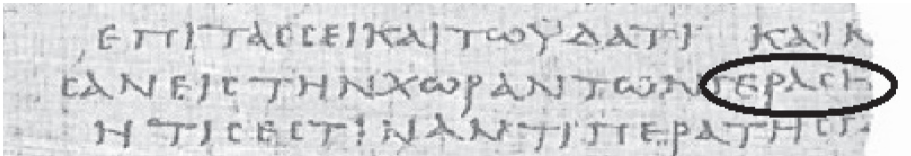 ΕΠΙΤΑϹϹΕΙΚΑΙΤωΫΔΑΤΙ ΚΑΙΚ
ϹΑΝΕΙϹΤΗΝΧωΡΑΝΤωΝΓΕΡΑϹΗ
ΗΤΙϹΕϹΤΙΝΑΝΤΙΠΕΡΑΤΗϹΓ